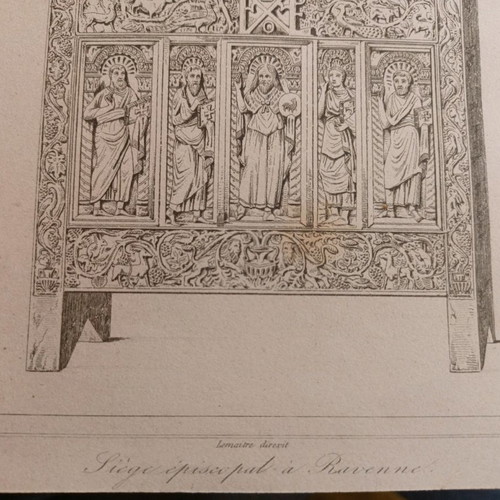 Lemaitre direxit
Siège épiscopal à Ravenne.